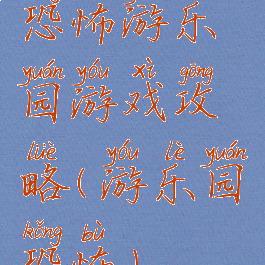 恐怖游乐
yuán yóu xì gōng
园游戏攻
lüè yóu lè yuán
略(游乐园
kǒng bù
恐怖)